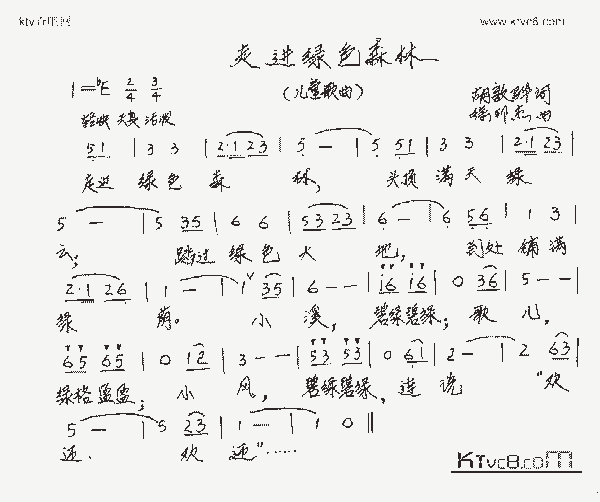 www.ktvc8.com
走进绿色森林
(儿童歌曲)
1=♭E 2/4 3/4
胡敦骅 词
曲
轻快 天真 活泼
5 1 | 3 3 | 2·1 2 3 | 5 — | 5 5 1 | 3 3 | 2·1 2 3 |
走进 绿色 森 林, 头顶 满天 绿
5 — | 5 3 5 | 6 6 | 5 3 2 3 | 6 — | 6 5 6 | 1 3 |
云; 踏过 绿色 大 地, 到处 铺满
2·1 2 6 | 1 — | 1 3 5 | 6 — — | i6 i6 | 0 3 6 | 5 — — |
绿 荫。 小 溪, 碧绿碧绿; 歌 儿,
6 5 6 5 | 0 1 2 | 3 — — | 5 3 5 3 | 0 6 1 | 2 — | 2 6 3 |
绿格盈盈; 小 风, 碧绿碧绿, 连 说 “欢
5 — | 5 2 3 | 1 — | 1 0 ‖
迎. 欢 迎”……
KTvc8.com